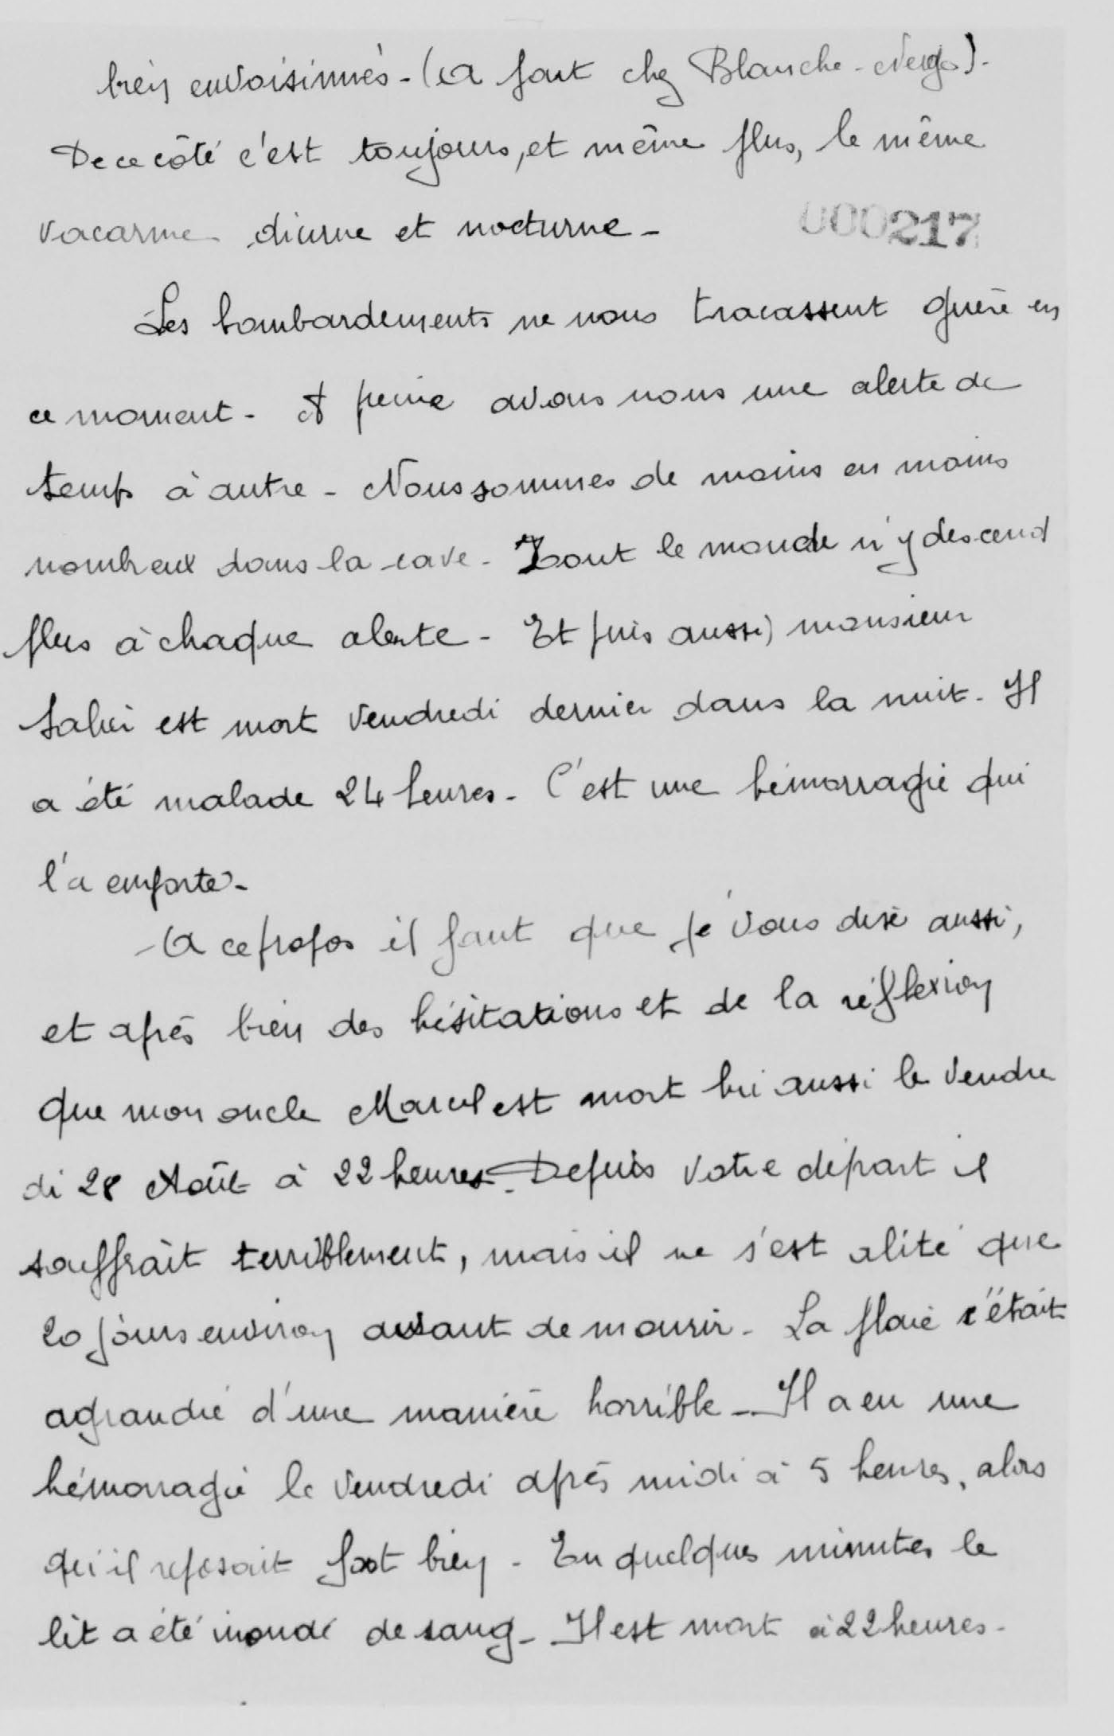 bien envoisinnés - (A part chez Blanche-Neige).
De ce côté c'est toujours, et même plus, le même
vacarme diurne et nocturne -
000217
Les bombardements ne nous tracassent guère en
ce moment - A peine avons nous une alerte de
temps à autre - Nous sommes de moins en moins
nombreux dans la cave - Tout le monde n'y descend
plus à chaque alerte - Et puis aussi) monsieur
est mort vendredi dernier dans la nuit - Il
a été malade 24 heures - C'est une hémorragie qui
l'a emporté -
A ce propos il faut que je vous dise aussi,
et après bien des hésitations et de la réflexion
que mon oncle Marcel est mort lui aussi le vendre
di 28 Août à 22 heures - Depuis votre départ il
souffrait terriblement, mais il ne s'est alité que
20 jours environ avant de mourir - La plaie s'était
agrandie d'une manière horrible - Il a eu une
hémorragie le vendredi après midi à 5 heures, alors
qu'il reposait fort bien - En quelques minutes le
lit a été inondé de sang - Il est mort à 22 heures -